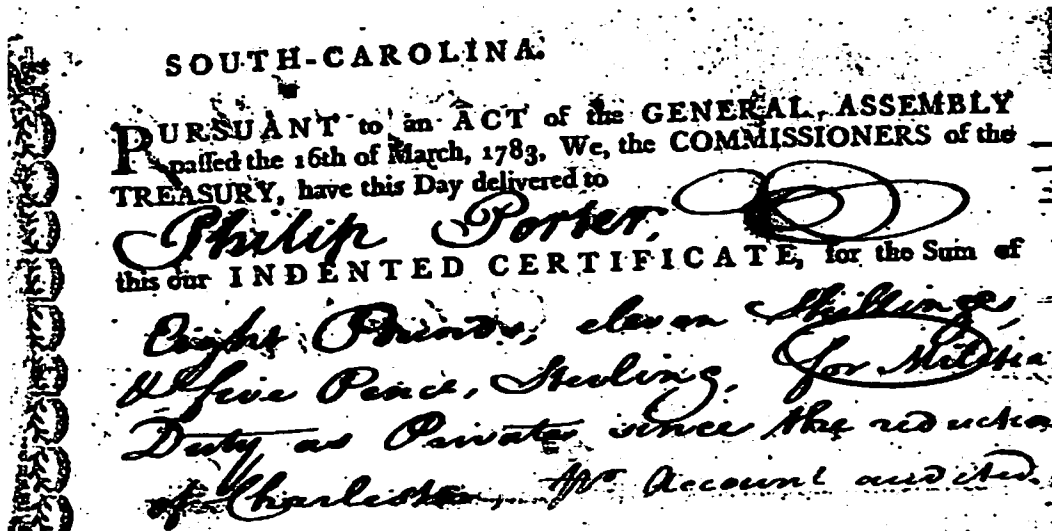 SOUTH-CAROLINA.
PURSUANT to an ACT of the GENERAL ASSEMBLY
passed the 16th of March, 1783, We, the COMMISSIONERS of the
TREASURY, have this Day delivered to
Philip Porter,
this our INDENTED CERTIFICATE, for the Sum of
Eight Pounds, eleven Shillings,
& five Pence, Sterling, for Militia
Duty as Private since the reduction
of Charleston, Account audited.